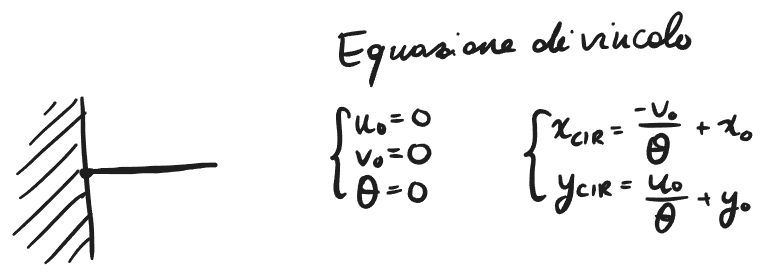 Equazione di vincolo
u₀ = 0
v₀ = 0
θ = 0
x_CIR = -v₀/θ + x₀
y_CIR = u₀/θ + y₀